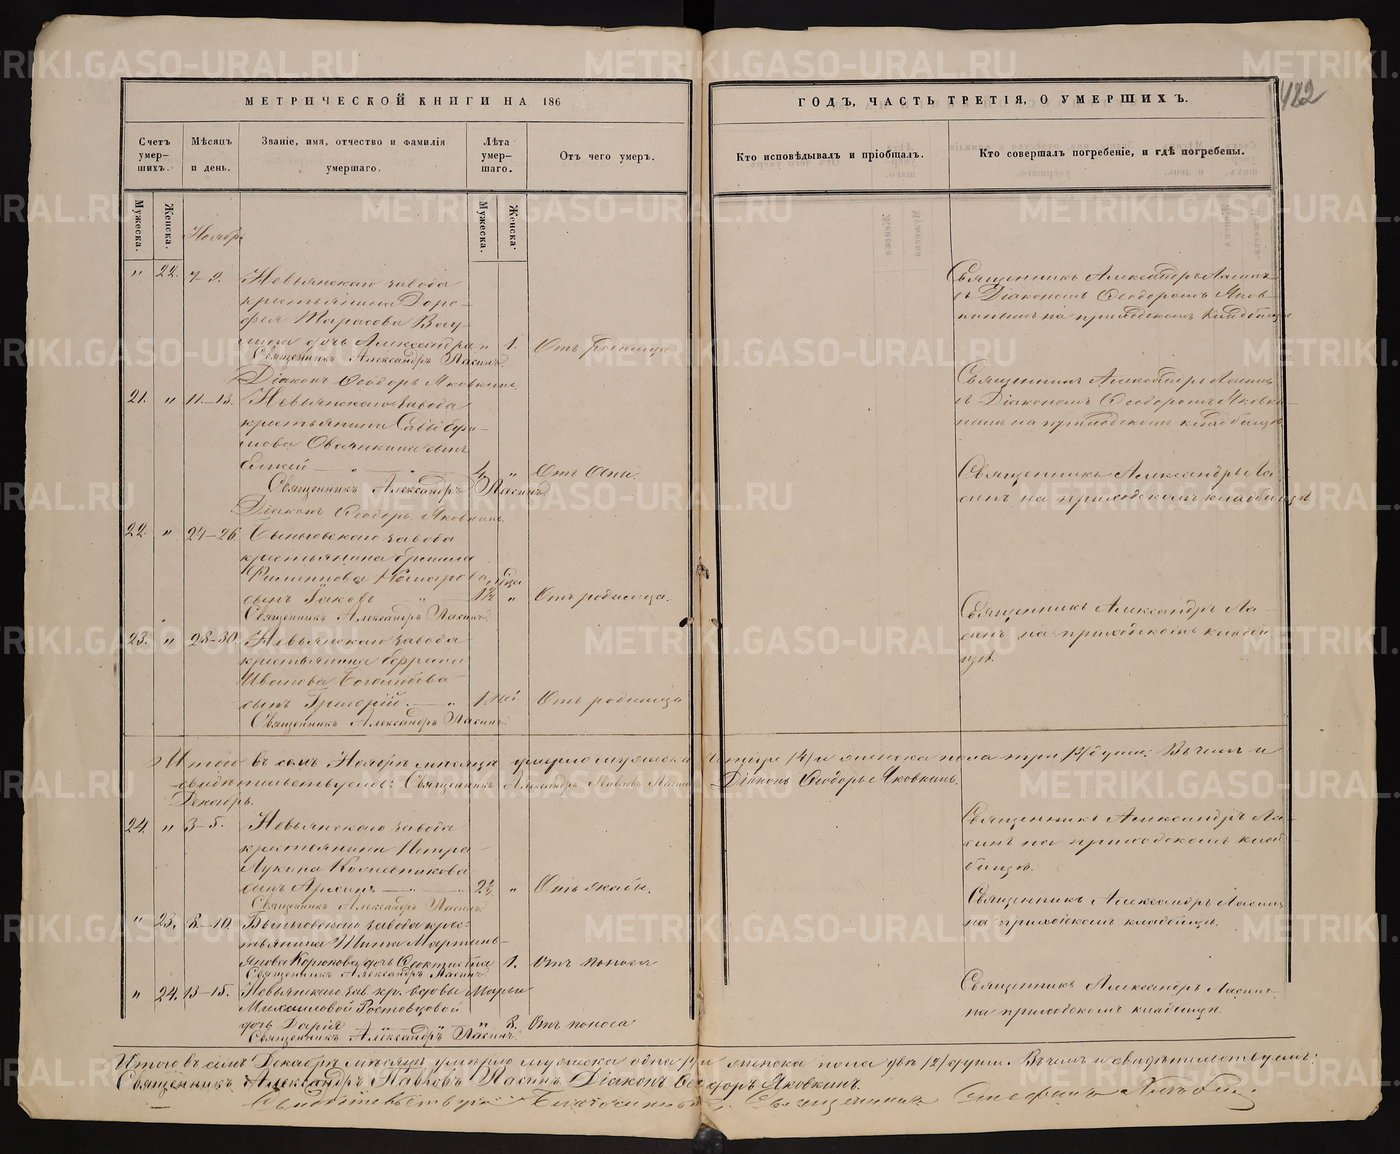 МЕТРИЧЕСКОЙ КНИГИ НА 186
ГОДЪ, ЧАСТЬ ТРЕТІЯ, О УМЕРШИХЪ.
482
Счетъ умер-шихъ.
Мѣсяцъ и день.
Званіе, имя, отчество и фамилія умершаго.
Лѣта умер-шаго.
Отъ чего умеръ.
Кто исповѣдывалъ и пріобщалъ.
Кто совершалъ погребеніе, и гдѣ погребены.
Мужеска.
Женска.
Мужеска.
Женска.
Ноябрь
" 22. 7-9. Невьянскаго завода
крестьянина Доро-
фея Тарасова Вау-
лина дочь Александра " 1. Отъ родимца
Священникъ Александръ Ласинъ
Діаконъ Ѳеодоръ Яковкинъ.
Священникъ Александръ Ласинъ
съ Діакономъ Ѳеодоромъ Яков-
кинымъ на приходскомъ кладбищѣ
21. " 11-13. Невьянскаго завода
крестьянина Саввы
сынъ
4 " Отъ Оспы.
Священникъ Александръ Ласинъ
Діаконъ Ѳеодоръ Яковкинъ.
Священникъ Александръ Ласинъ
съ Діакономъ Ѳеодоромъ Яковки-
нымъ на приходскомъ кладбищѣ.
22. " 24-26. Быньговскаго завода
крестьянина
Филиппова
сынъ Іаковъ " Отъ родимца.
Священникъ Александръ Ласинъ.
Священникъ Александръ Ла-
синъ на приходскомъ кладбищѣ
23. " 28-30. Невьянскаго завода
крестьянина
Иванова Боголюбова
сынъ Григорій. " Отъ родимца
Священникъ Александръ Ласинъ.
Священникъ Александръ Ла-
синъ на приходскомъ кладби-
щѣ.
Итого въ семъ Ноябрѣ мѣсяцѣ умерло мужеска четыре /4/ и женска пола три /3/ души. Въ чемъ и
свидѣтельствуемъ: Священникъ Александръ Павловъ Ласинъ Діаконъ Ѳеодоръ Яковкинъ.
Декабрь.
24. " 3-5. Невьянскаго завода
крестьянина Петра
Лукина
сынъ Архипъ " Отъ
Священникъ Александръ Ласинъ.
Священникъ Александръ Ла-
синъ на приходскомъ клад-
бищѣ.
" 23. 8-10. Быньговскаго завода крес-
тьянина Тита Мартинь-
янова Корюкова дочь Ѳеоктиста 1. Отъ поноса
Священникъ Александръ Ласинъ.
Священникъ Александръ Ласинъ
на приходскомъ кладбищѣ.
" 24. 13-15. Невьянскаго зав. кр. вдовы Марьи
Михаиловой Ростовцовой
дочь Дарія " 3. Отъ поноса
Священникъ Александръ Ласинъ.
Священникъ Александръ Ласинъ
на приходскомъ кладбищѣ.
Итого въ семъ Декабрѣ мѣсяцѣ умерло мужеска одна /1/ и женска пола двѣ /2/ души. Въ чемъ и свидѣтельствуемъ:
Священникъ Александръ Павловъ Ласинъ Діаконъ Ѳеодоръ Яковкинъ.
Священникъ Стефанъ
METRIKI.GASO-URAL.RU